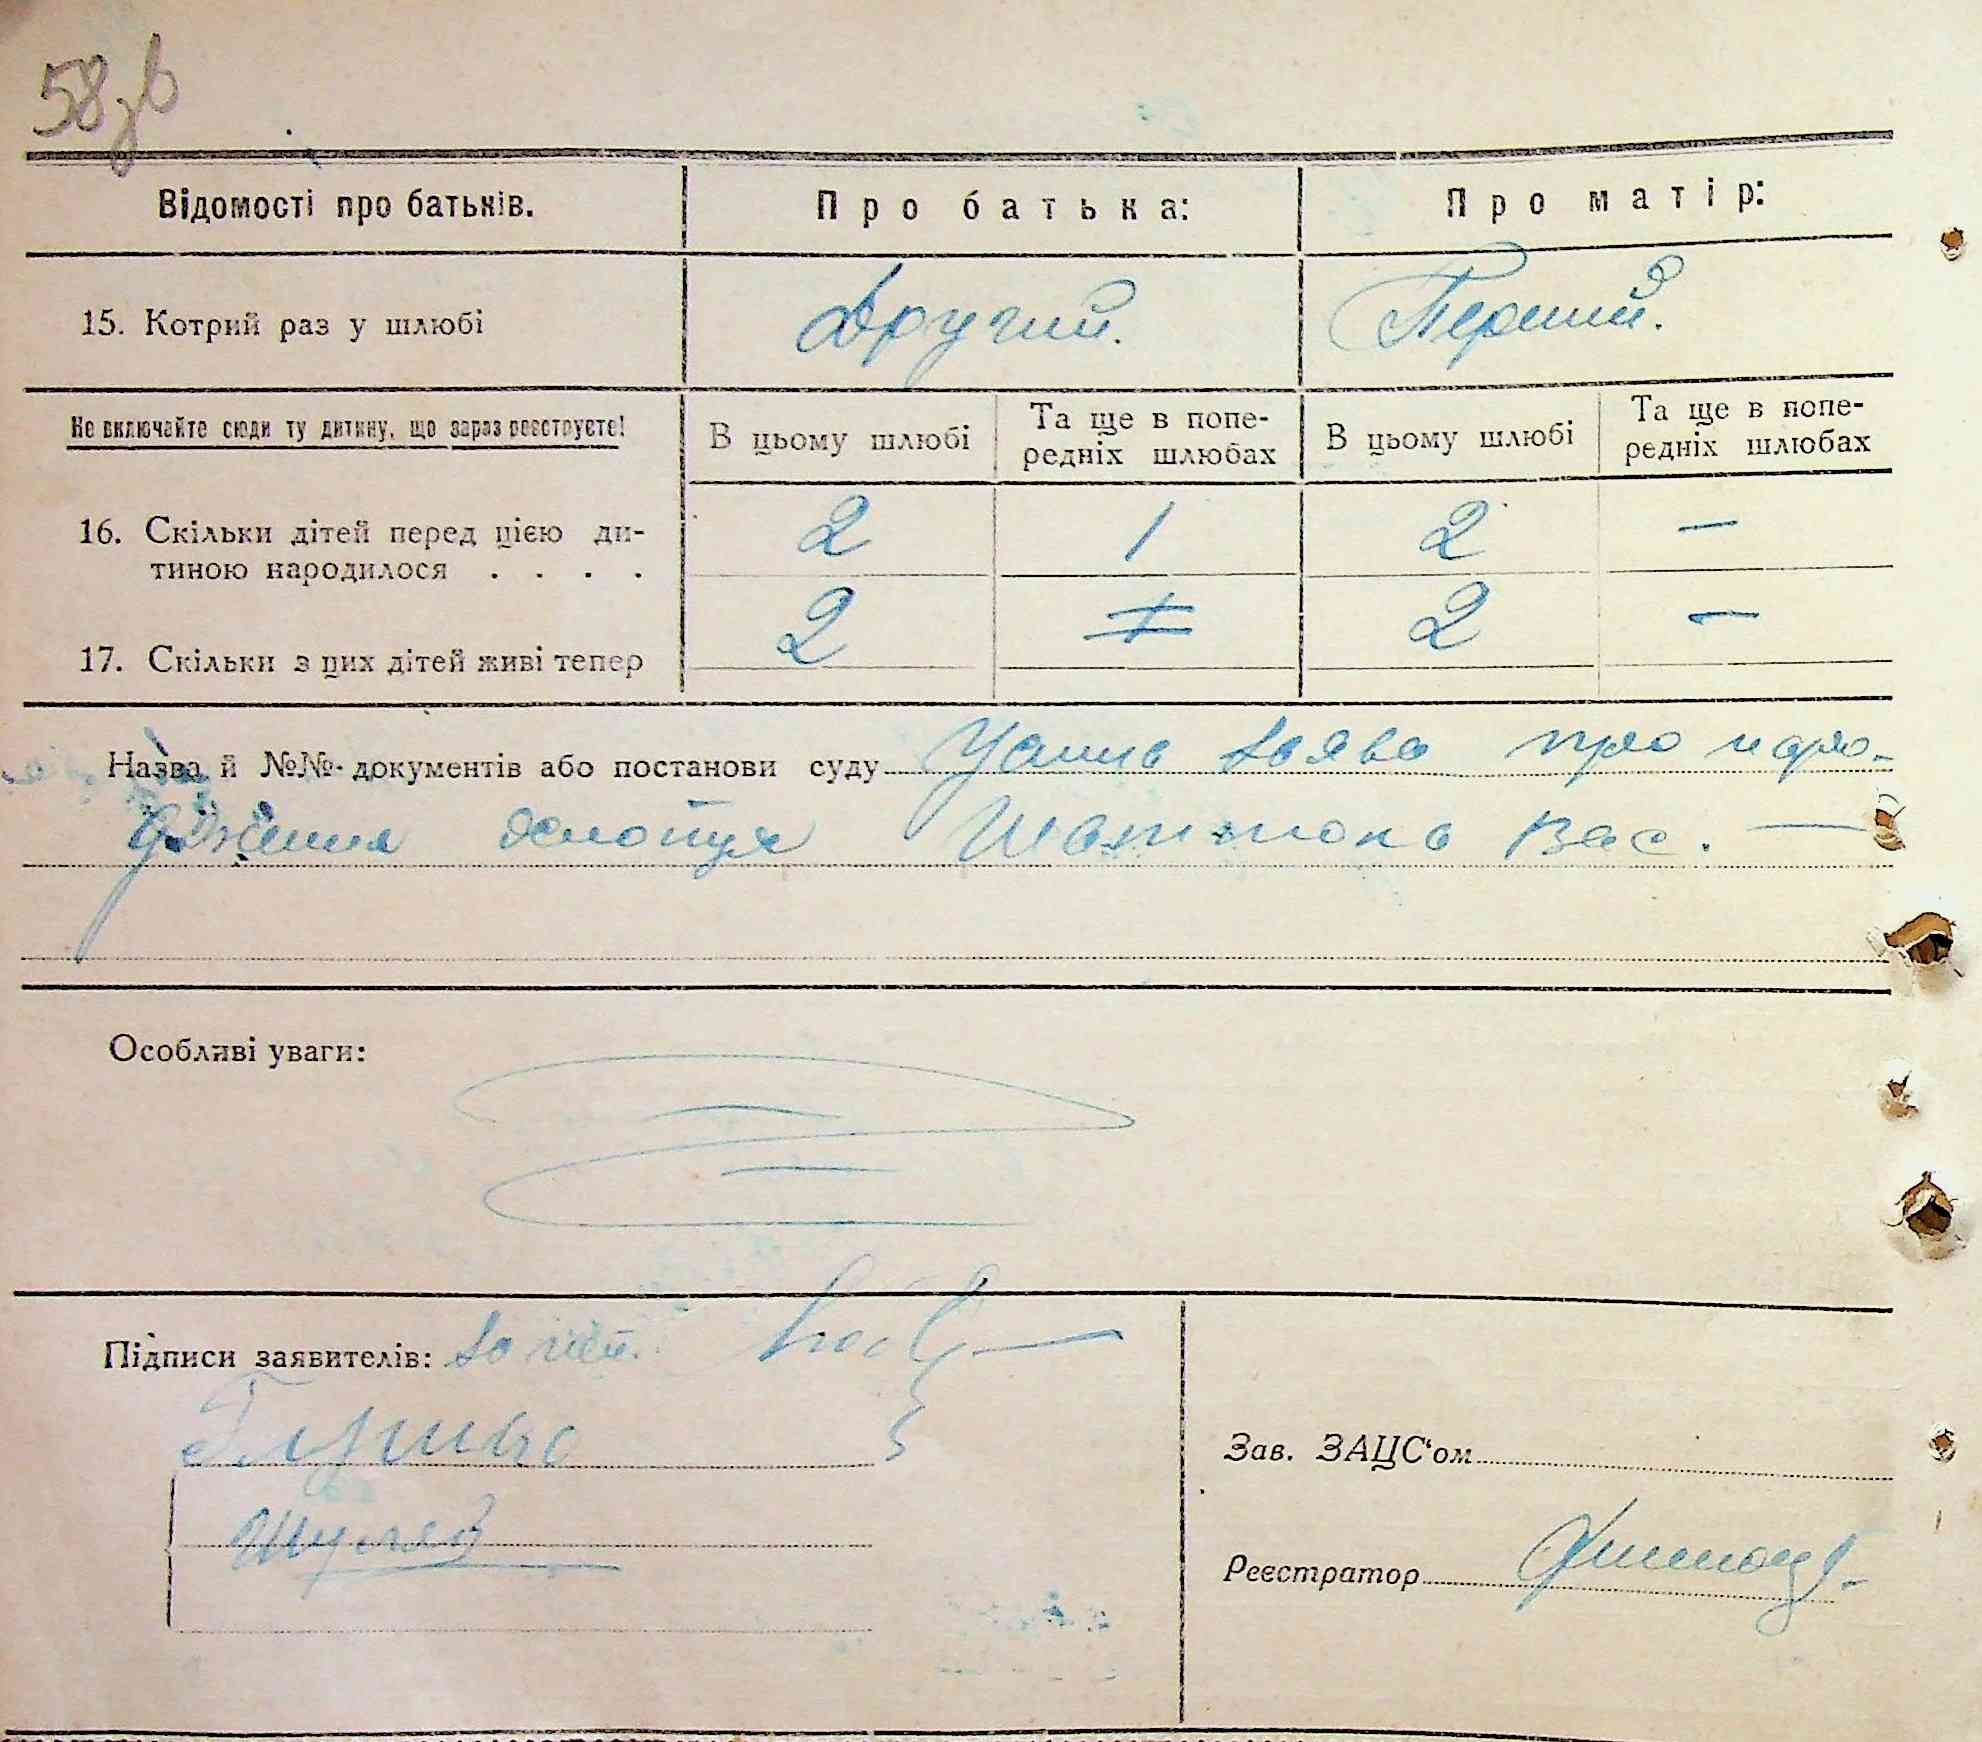 58зв
Відомості про батьків. Про батька: Про матір:
15. Котрий раз у шлюбі Другий. Перший.
Не включайте сюди ту дитину, що зараз реєструєте! В цьому шлюбі Та ще в попе- В цьому шлюбі Та ще в попе-
редніх шлюбах редніх шлюбах
16. Скільки дітей перед цією ди- 2 1 2 —
тиною народилося . . . .
17. Скільки з цих дітей живі тепер 2 2 —
Назва й №№ документів або постанови суду Усна заява про наро-
дження Вас. —
Особливі уваги:
Підписи заявителів:
Зав. ЗАЦС‘ом
Реєстратор